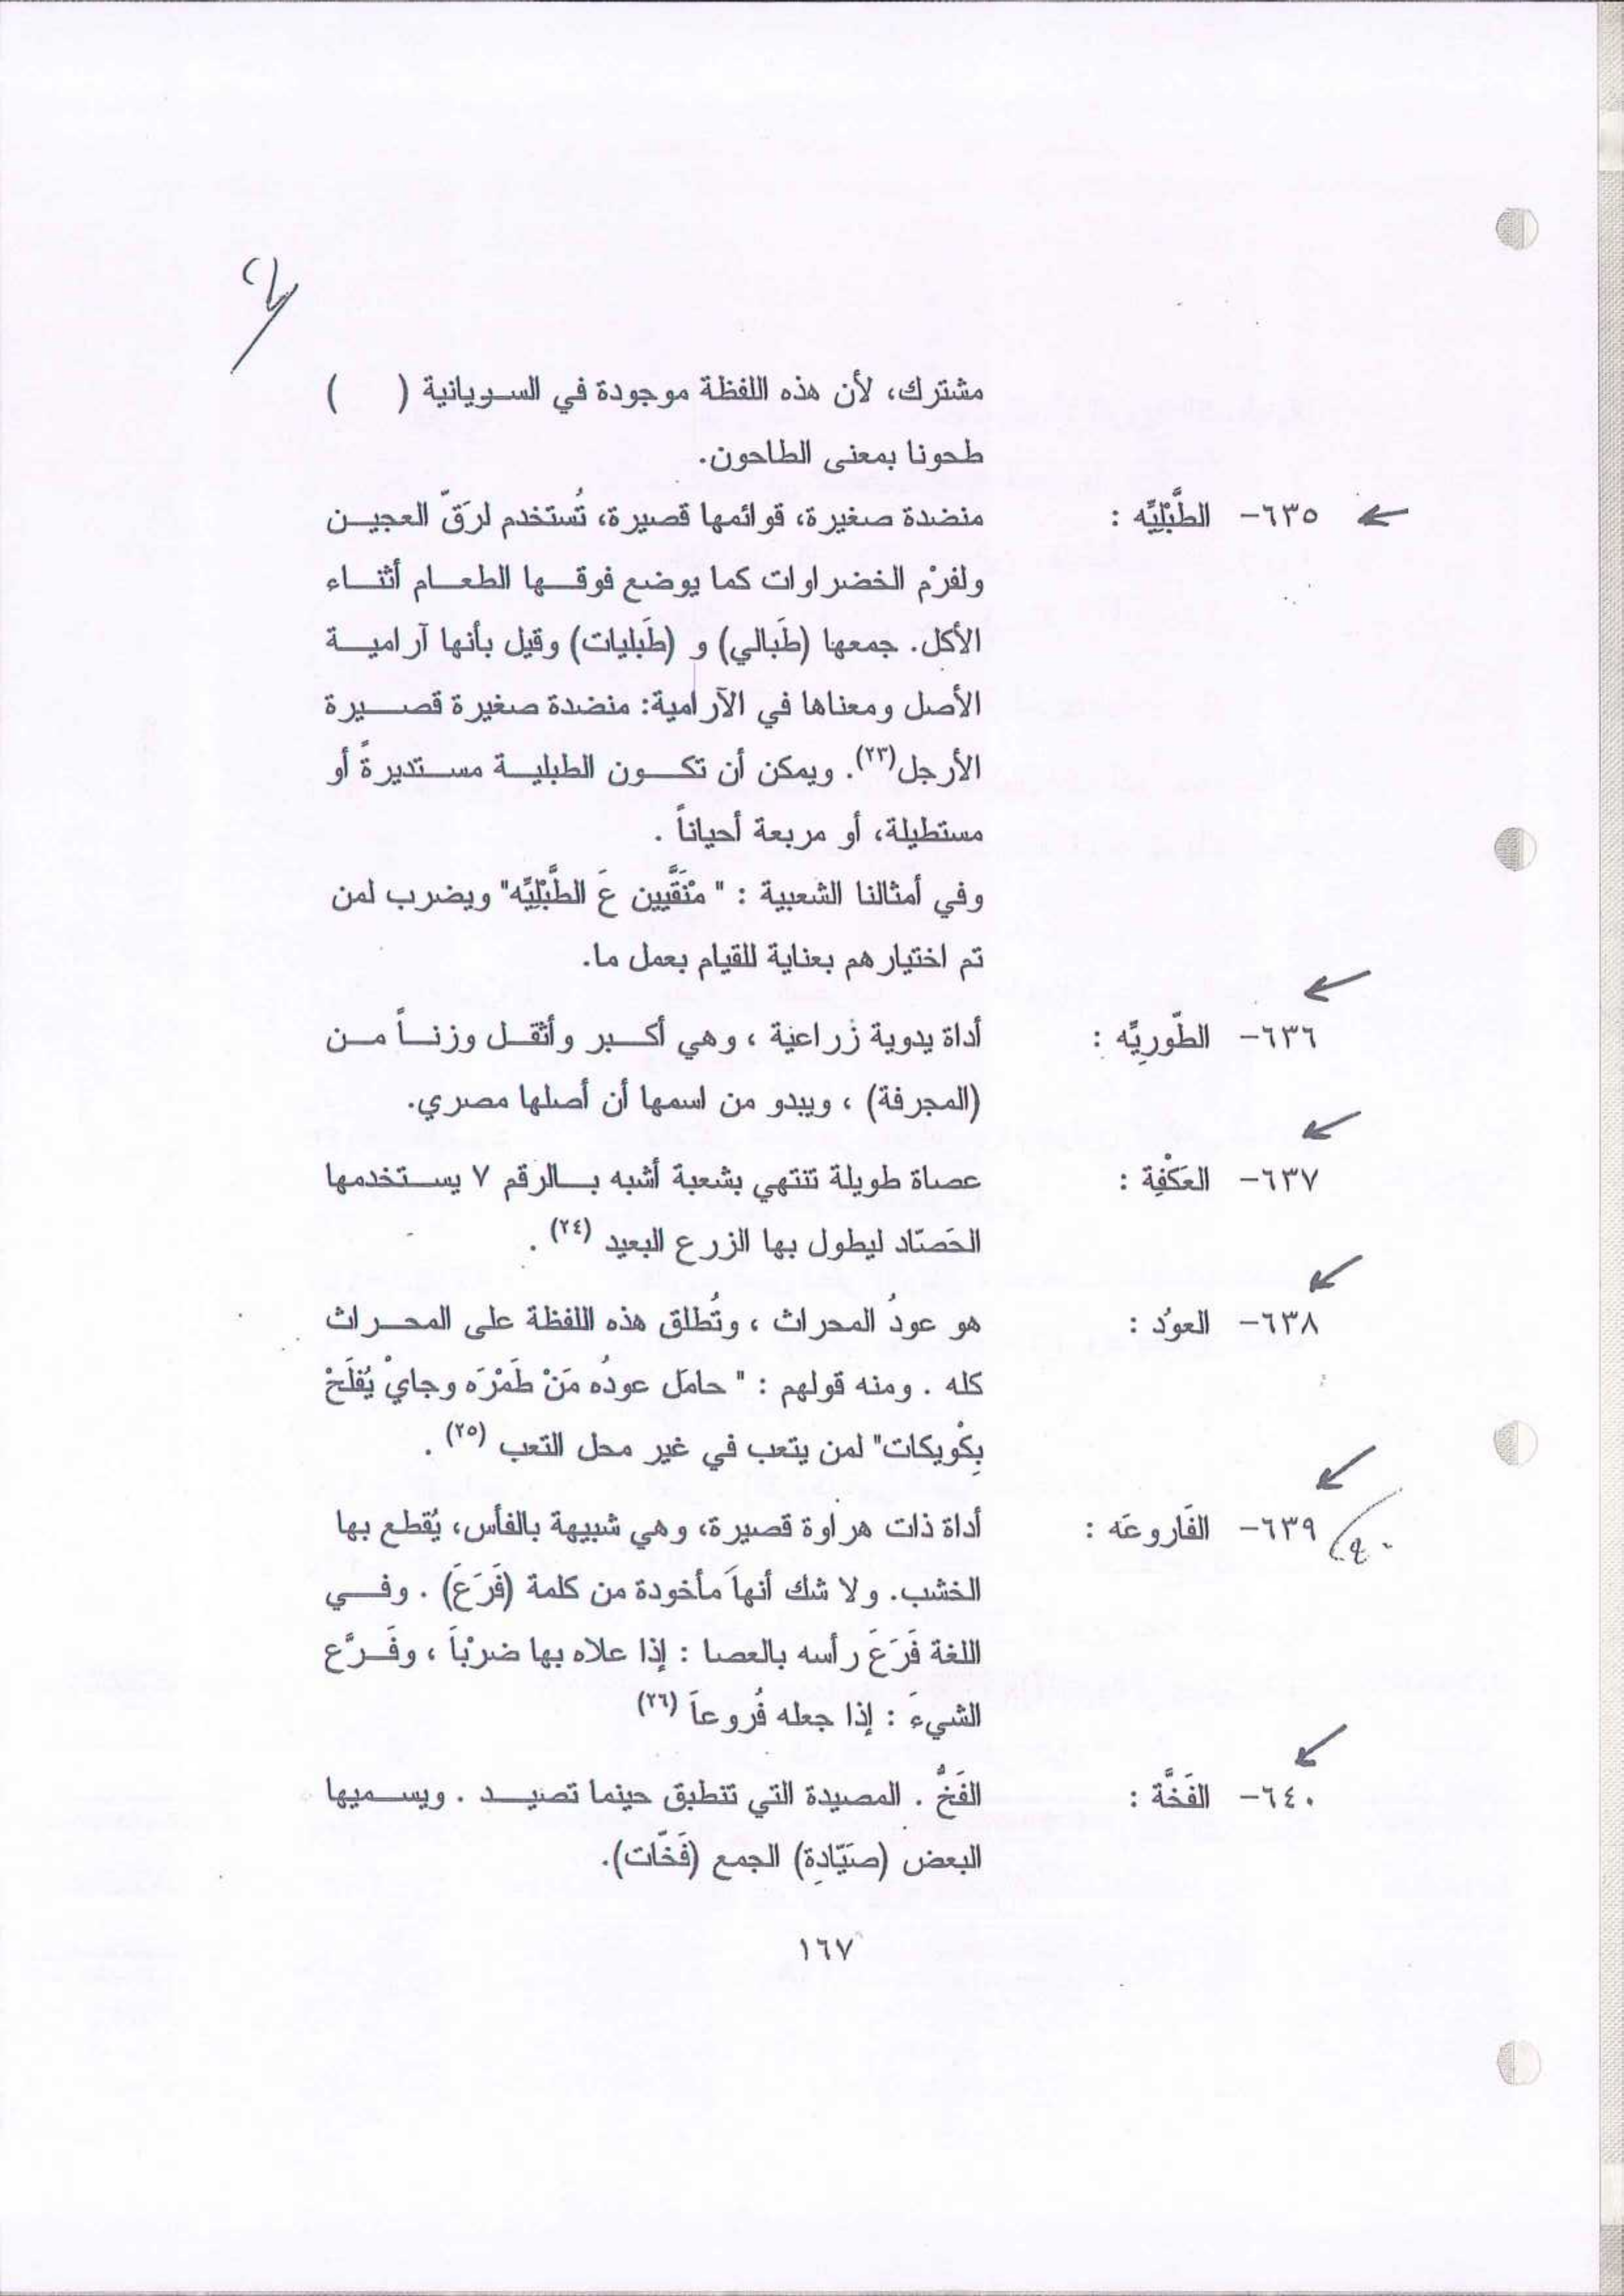 مشترك، لأن هذه اللفظة موجودة في السويانية (      )
طحونا بمعنى الطاحون.
٦٣٥- الطَّبْلِيَّه : منضدة صغيرة، قوائمها قصيرة، تُستخدم لرَقّ العجين
ولفرْم الخضراوات كما يوضع فوقها الطعام أثناء
الأكل. جمعها (طَبالي) و (طَبليات) وقيل بأنها آرامية
الأصل ومعناها في الآرامية: منضدة صغيرة قصيرة
الأرجل(٢٣). ويمكن أن تكون الطبلية مستديرةً أو
مستطيلة، أو مربعة أحياناً .
وفي أمثالنا الشعبية : " مْنَقَّيين عَ الطَّبْلِيَّه" ويضرب لمن
تم اختيارهم بعناية للقيام بعمل ما.
٦٣٦- الطّورِيَّه : أداة يدوية زراعية ، وهي أكبر وأثقل وزناً من
(المجرفة) ، ويبدو من اسمها أن أصلها مصري.
٦٣٧- العَكْفِة : عصاة طويلة تنتهي بشعبة أشبه بالرقم ٧ يستخدمها
الحَصّاد ليطول بها الزرع البعيد (٢٤) .
٦٣٨- العوُد : هو عودُ المحراث ، وتُطلق هذه اللفظة على المحراث
كله . ومنه قولهم : " حامَل عودُه مَنْ طَمْرَه وجايْ يُفلَحْ
بِكْويكات" لمن يتعب في غير محل التعب (٢٥) .
٦٣٩- الفَاروعَه : أداة ذات هراوة قصيرة، وهي شبيهة بالفأس، يُقطع بها
الخشب. ولا شك أنهاَ مأخودة من كلمة (فَرَعَ) . وفي
اللغة فَرَعَ رأسه بالعصا : إذا علاه بها ضرْباَ ، وفَرَّع
الشيءَ : إذا جعله فُروعاَ (٢٦)
٦٤٠- الفَخَّة : الفَخُّ . المصيدة التي تنطبق حينما تصيد . ويسميها
البعض (صَيّادِة) الجمع (فَخّات).
١٦٧